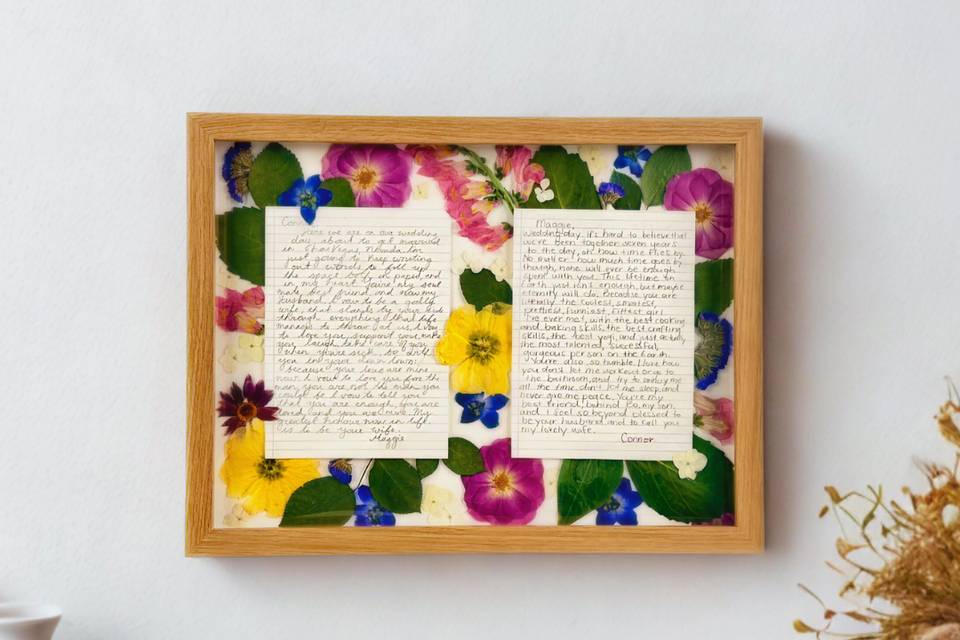 Here we are on our wedding
day, about to get married
in Las Vegas, Nevada. I'm
just going to keep writing
out words to fill up
the space both on paper, and
in my heart. You're my soul
mate, best friend, and now my
husband. I vow to be a godly
wife, that stands by your side
through everything that life
manages to throw at us. I vow
to love you, support you, make
you laugh, take care of you
when you're sick, be
you in your
because your are mine
now. I vow to love you for the
man you are, not the man you
could be. I vow to tell you
that you are enough, you are
loved, and you welcome. My
greatest honour now in life
is to be your wife.
Maggie
Maggie,
Wedding day. It's hard to believe that
we've been together seven years
to the day, oh how time flies by.
No matter how much time goes by
though, none will ever be enough
spent with you. This lifetime on
Earth just isn't enough, but maybe
eternity will do. Because you are
literally the coolest, smartest,
prettiest, funniest, fittest girl
I've ever met, with the best cooking
and baking skills, the best crafting
skills, the best yogi, and just actually
the most talented, successful,
gorgeous person on the Earth.
You're also so humble. I love how
you don't let me workout or go to
the bathroom, and try to annoy me
all the time, don't let me sleep, and
never give me peace. You're my
best friend, behind Bo, my son,
and I feel so beyond blessed to
be your husband, and to call you
my lovely wife.
Connor